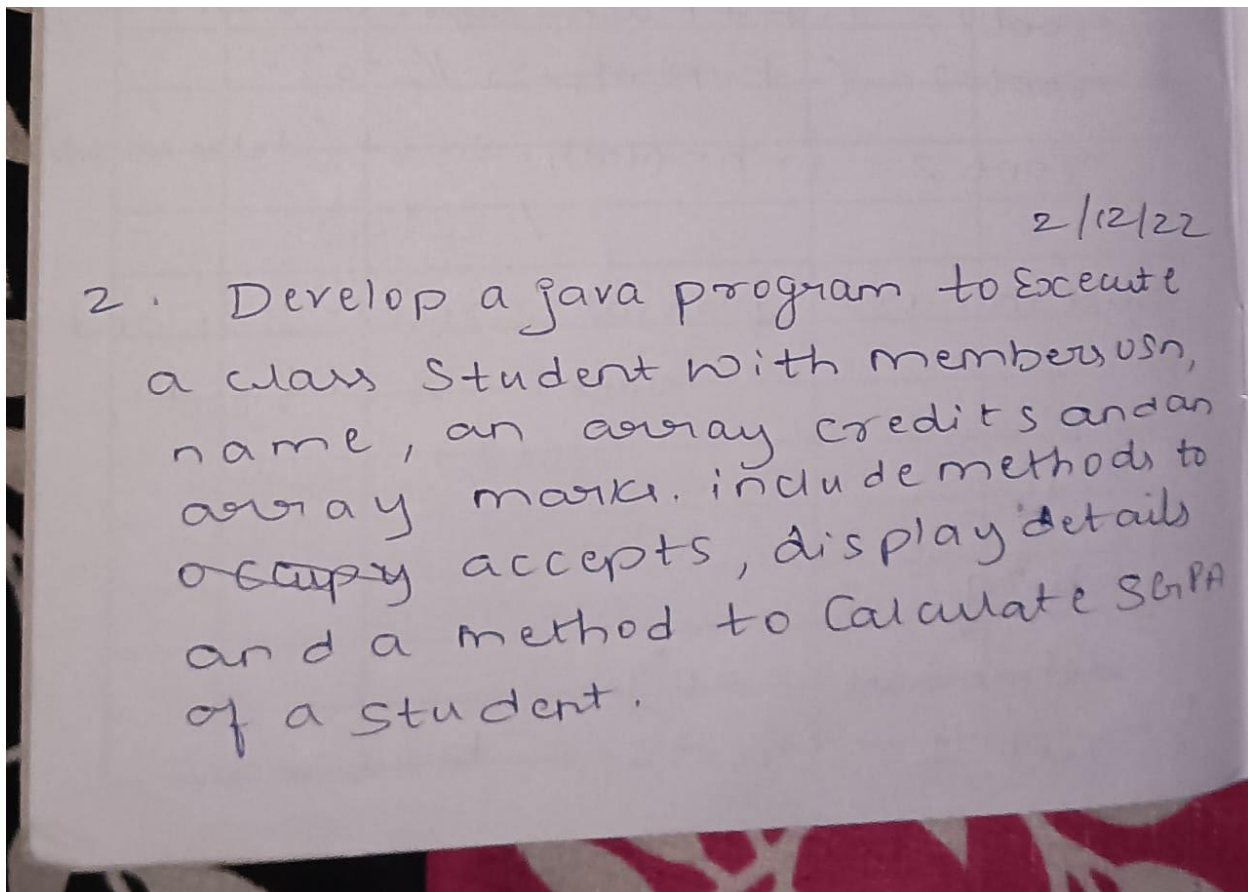 2/12/22
2. Develop a java program to Execute
a class Student with members usn,
name, an array credits and an
array marks. include methods to
occupy accepts, display details
and a method to Calculate SGPA
of a student.